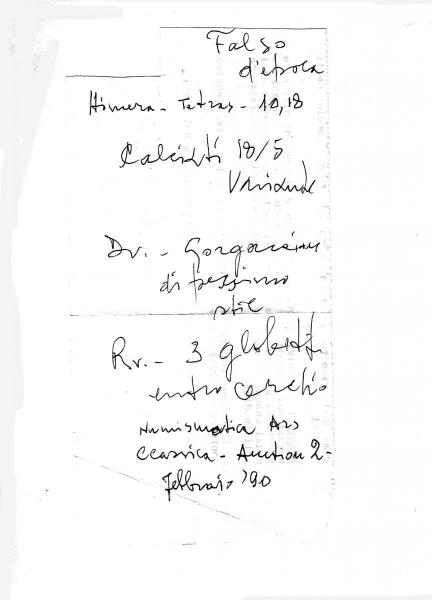 Falso
d'epoca
Himera - Tetras - 10,18
Calciati 18/5
Variante
Dr. - Gorgoneion
di pessimo
stile
Rv. - 3 globetti
entro cerchio
Numismatica Ars
Classica - Auction 2 -
Febbraio '90